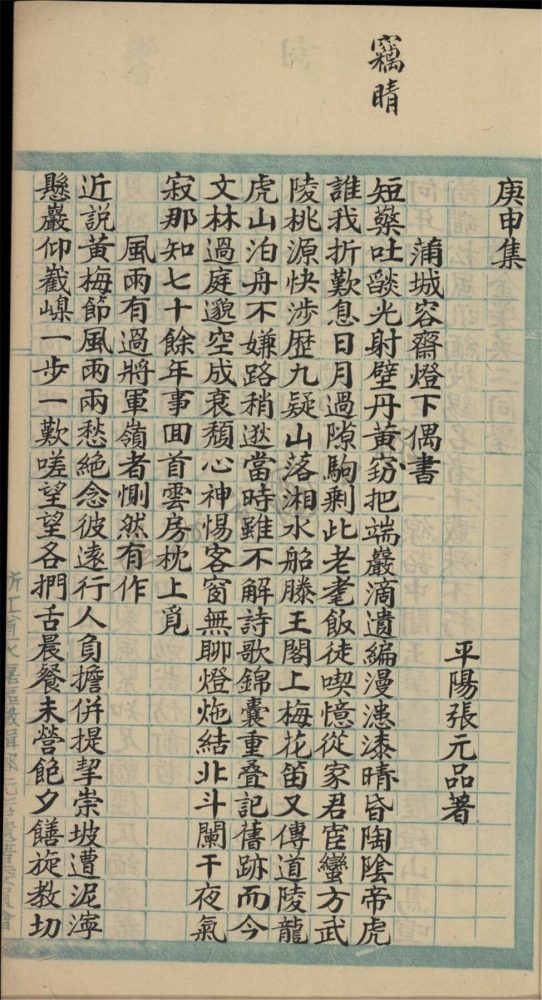 竊晴
庚申集
平陽張元品著
蒲城容齋燈下偶書
短檠吐燄光射壁丹黃窈把端嚴滴遺編漫漶漆晴昏陶陰帝虎
誰我折歎息日月過隙駒剩此老耄飯徒喫憶從家君宦蠻方武
陵桃源快涉歷九疑山落湘水船滕王閣上梅花笛又傳道陵龍
虎山泊舟不嫌路稍逖當時雖不解詩歌錦囊重叠記舊跡而今
文林過庭邈空成衰頹心神惕客窗無聊燈灺結北斗闌干夜氣
寂那知七十餘年事回首雲房枕上覓
風雨有過將軍嶺者惻然有作
近説黃梅節風雨兩愁絕念彼遠行人負擔併提挈崇坡遭泥濘
懸巖仰巀嵲一步一歎嗟望望各捫舌晨餐未營飽夕饍旋教切